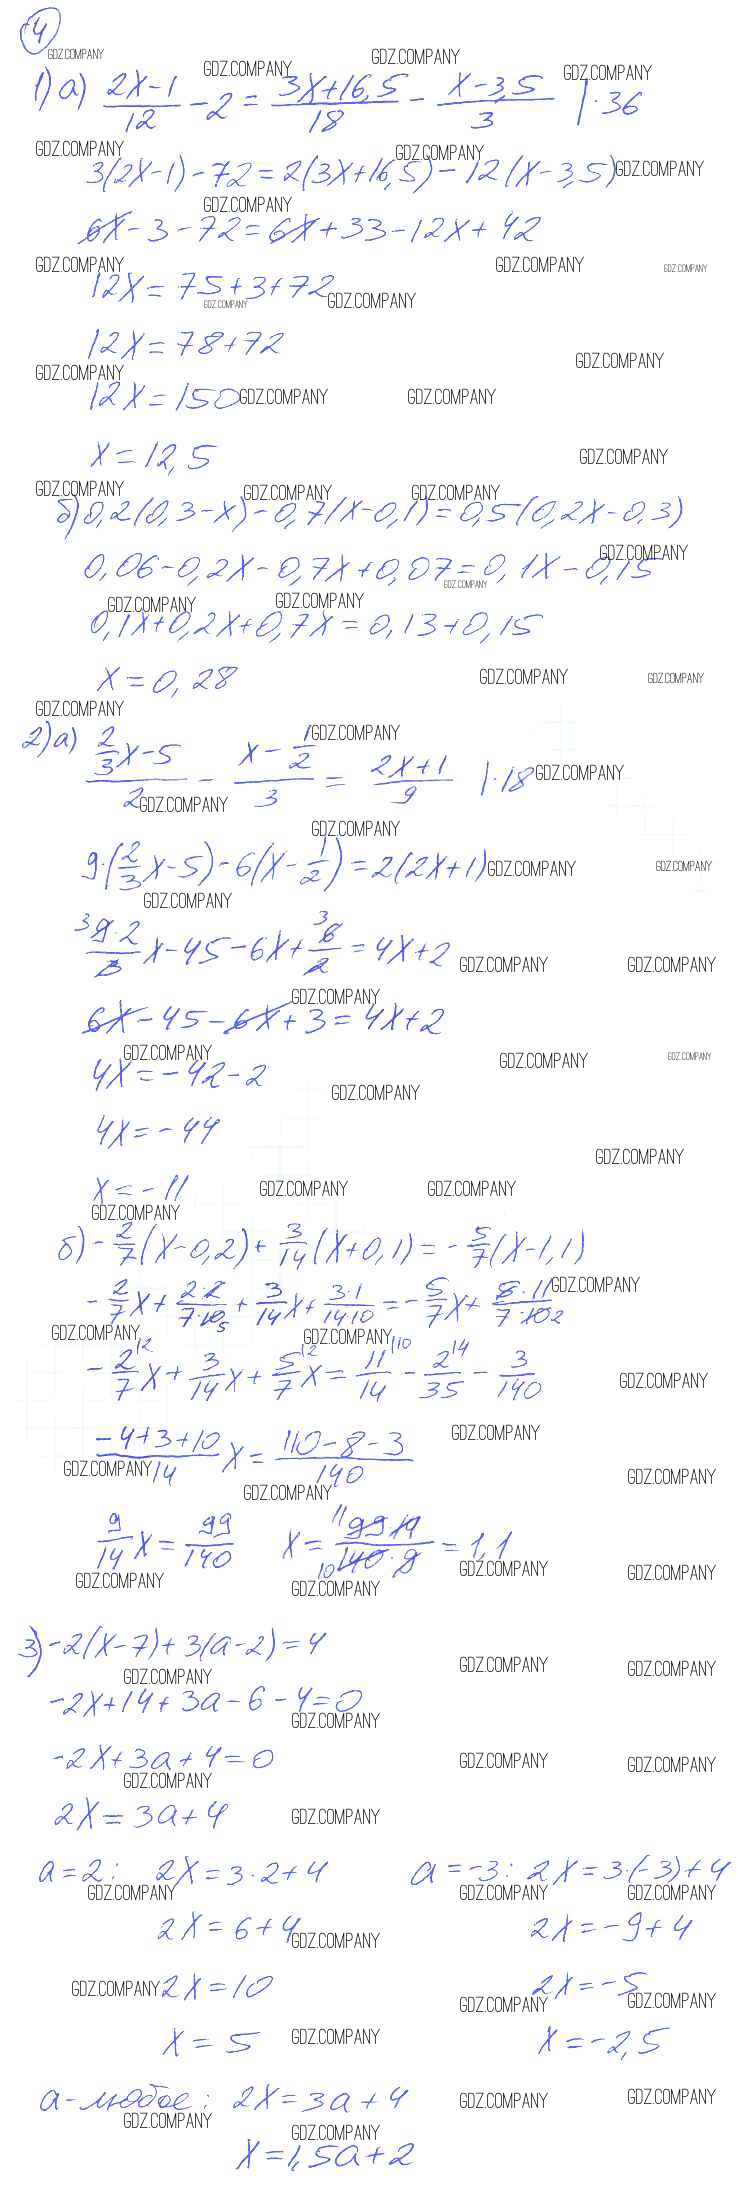 4
1) а) (2x-1)/12 - 2 = (3x+16,5)/18 - (x-3,5)/3 |·36
3(2x-1)-72=2(3x+16,5)-12(x-3,5)
6x-3-72=6x+33-12x+42
12x=75+3+72
12x=78+72
12x=150
x=12,5
б) 0,2(0,3-x)-0,7(x-0,1)=0,5(0,2x-0,3)
0,06-0,2x-0,7x+0,07=0,1x-0,15
0,1x+0,2x+0,7x=0,13+0,15
x=0,28
2) а) (2/3x-5)/2 - (x-1/2)/3 = (2x+1)/9 |·18
9·(2/3x-5)-6(x-1/2)=2(2x+1)
³9·2/3 x-45-6x+³6/2=4x+2
6x-45-6x+3=4x+2
4x=-42-2
4x=-44
x=-11
б) -2/7(x-0,2)+3/14(x+0,1)=-5/7(x-1,1)
-2/7x+2·2/7·10₅+3/14x+3·1/14·10=-5/7x+5·11/7·10₂
-2/7^(2x+3/14x+5/7^(2x=11/14^(10-2/35^(4-3/140
(-4+3+10)/14 x=(110-8-3)/140
9/14x=99/140 x=¹¹99·14/₁₀140·9=1,1
3) -2(x-7)+3(a-2)=4
-2x+14+3a-6-4=0
-2x+3a+4=0
2x=3a+4
a=2: 2x=3·2+4 a=-3: 2x=3·(-3)+4
2x=6+4 2x=-9+4
2x=10 2x=-5
x=5 x=-2,5
a-любое: 2x=3a+4
x=1,5a+2
GDZ.COMPANY